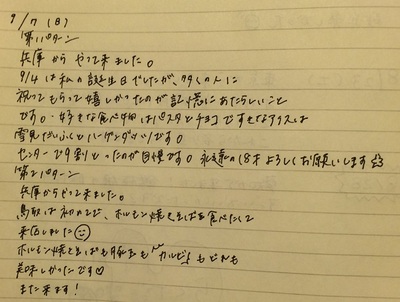 9/7 (日)
第1パターン
兵庫から やって来ました。
9/4 は 私の誕生日でしたが、多くの人に
祝ってもらって嬉しかったのが記憶にあたらしいこと
です。好きな食べ物はパスタとチョコですきなアイスは
雪見だいふくとハーゲンダッツです。
センターで9割とったのが自慢です。永遠の18才よろしくお願いします
第2パターン
兵庫からやって来ました。
鳥取は初めてで、ホルモン焼きそばを食べたくて
来店しました
ホルモン焼きそばも豚玉も "カルビ" もどれも
美味しかったです♡
また来ます!